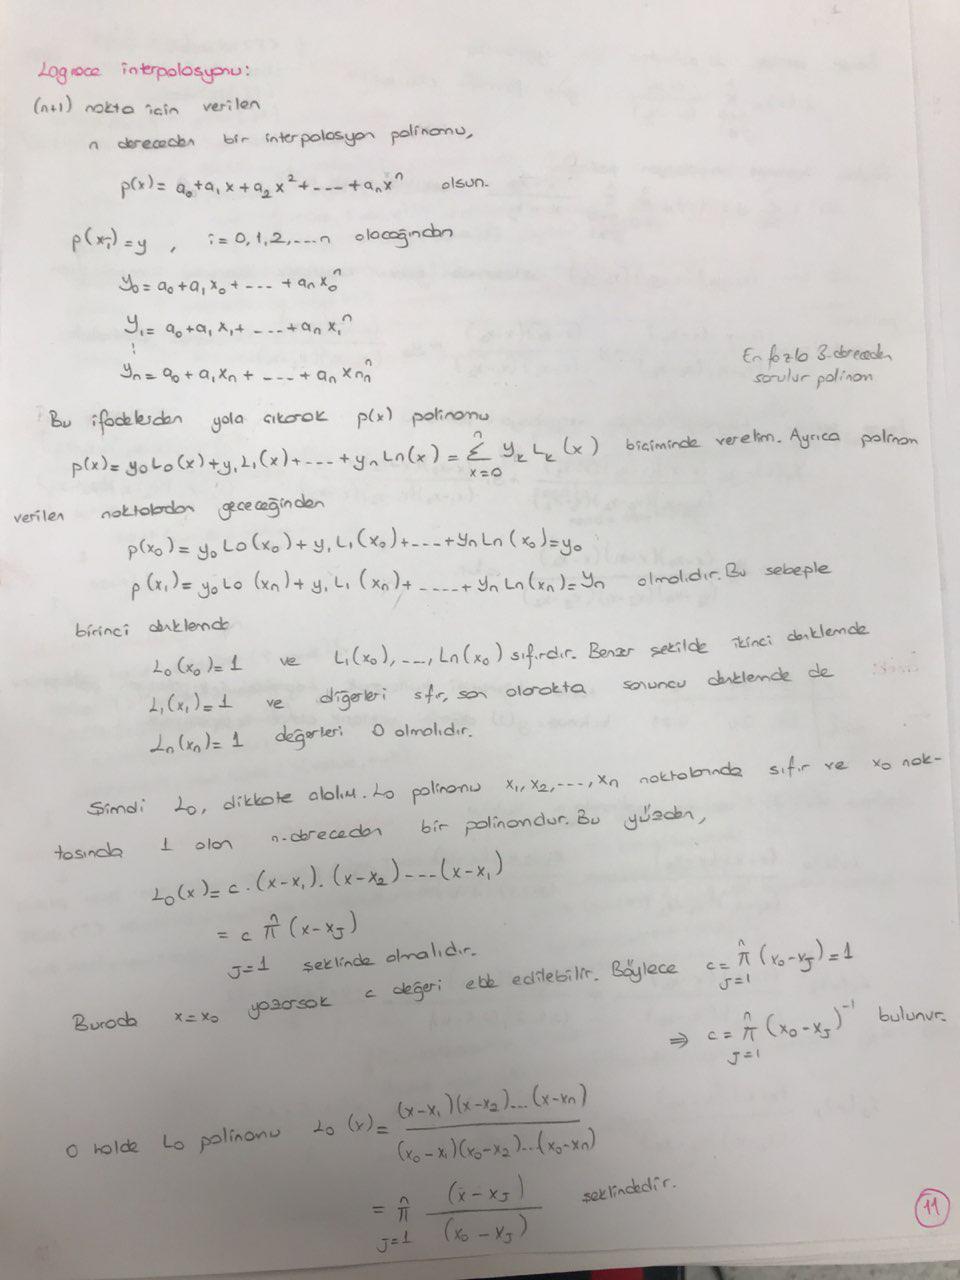 Lagrace interpolasyonu:
(n+1) nokta icin verilen
n dereceden bir interpolasyon polinomu,
p(x) = a₀+a₁x+a₂x²+----+aₙxⁿ olsun.
p(xᵢ)=y , i=0,1,2,...n olacağından
y₀=a₀+a₁x₀+----+aₙx₀ⁿ
y₁=a₀+a₁x₁+----+aₙx₁ⁿ
⋮
yₙ=a₀+a₁xₙ+----+aₙxₙⁿ
En fazla 3.dereceden
sorulur polinom
Bu ifadelerden yola çıkarak p(x) polinomu
p(x)=y₀L₀(x)+y₁L₁(x)+----+yₙLn(x)=∑ⁿₓ₌₀ yₖLₖ(x) biçiminde verelim. Ayrıca polinom
verilen noktalardan geçeceğinden
p(x₀)=y₀L₀(x₀)+y₁L₁(x₀)+----+yₙLn(x₀)=y₀
p(x₁)=y₀L₀(xₙ)+y₁L₁(xₙ)+-----+yₙLn(xₙ)=yₙ olmalıdır. Bu sebeple
birinci denklemde
L₀(x₀)=1 ve L₁(x₀),---,Ln(x₀) sıfırdır. Benzer şekilde ikinci denklemde
L₁(x₁)=1 ve diğerleri sıfır, son olarakta sonuncu denklemde de
Ln(xₙ)=1 değerleri 0 olmalıdır.
Şimdi L₀, dikkate alalım. L₀ polinomu x₁,x₂,---,xₙ noktalarında sıfır ve x₀ nok-
tasında 1 olan n.dereceden bir polinomdur. Bu yüzden,
L₀(x)=c.(x-x₁).(x-x₂)----(x-x₁)
= c ⁿπ (x-xⱼ)
J=1 şeklinde olmalıdır.
Burada x=x₀ yazarsak c değeri elde edilebilir. Böylece c= ⁿπⱼ₌₁ (x₀-xⱼ)=1
⇒ c= ⁿπⱼ₌₁ (x₀-xⱼ)⁻¹ bulunur.
O halde L₀ polinomu L₀(x)= (x-x₁)(x-x₂)...(x-xₙ) / (x₀-x₁)(x₀-x₂)...(x₀-xₙ)
= ⁿπⱼ₌₁ (x-xⱼ) / (x₀-xⱼ) şeklindedir.
11